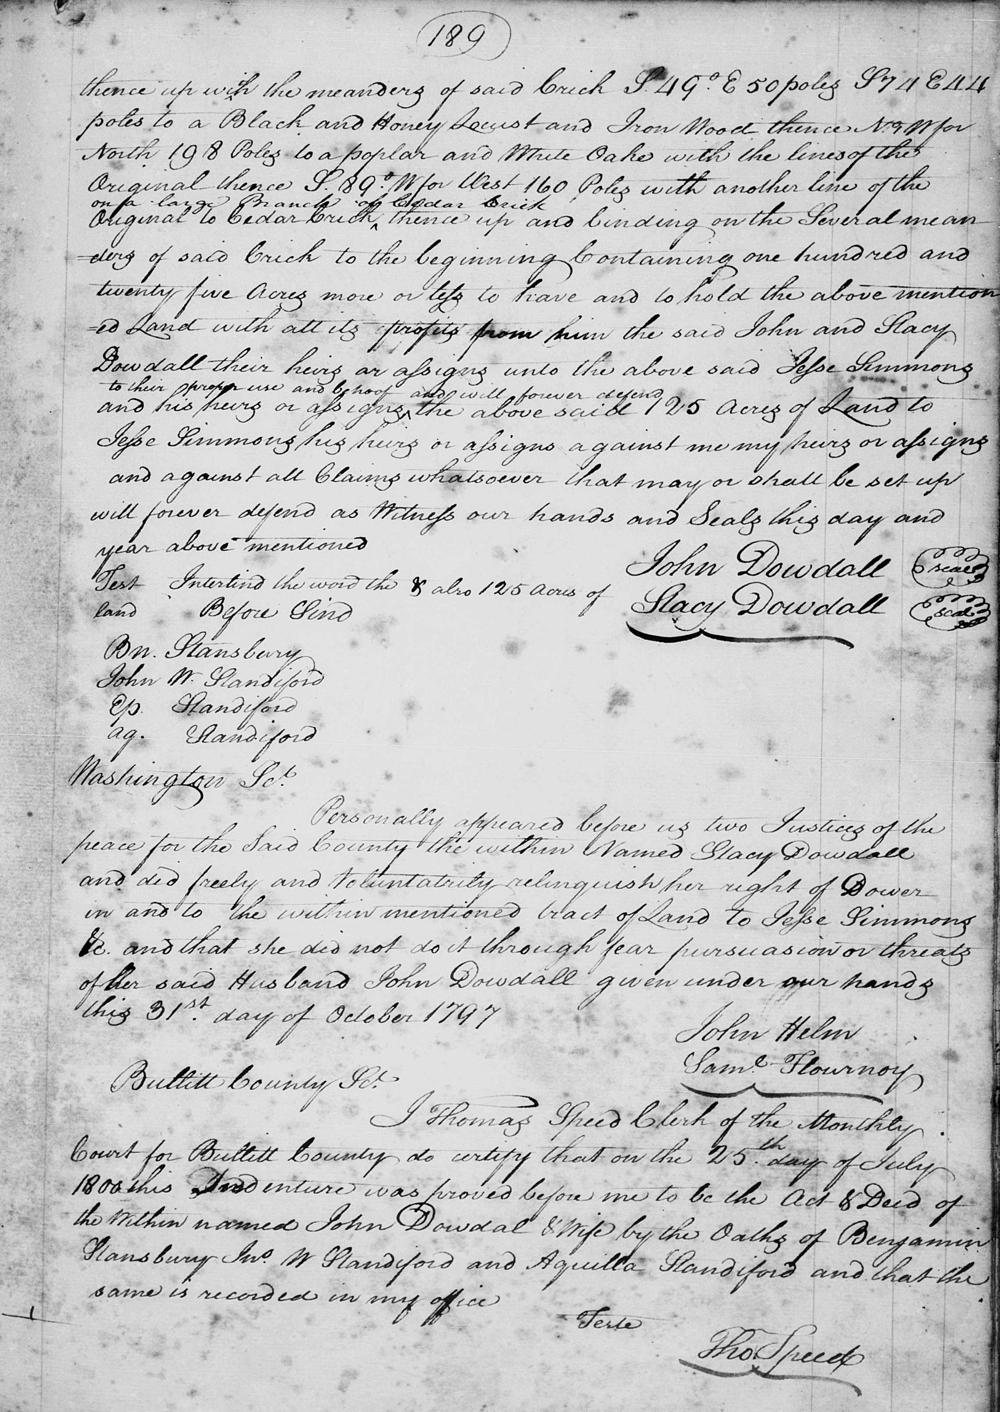 189
thence up with the meanders of said Crick S. 49° E 50 poles S 74 E 44
poles to a Black and Honey Locust and Iron Wood thence N 9 W for
North 198 Poles to a poplar and White Oake with the lines of the
Original thence S. 89° W for West 160 Poles with another line of the
on a large Branch of Cedar Crick
Original to Cedar Crick ^ thence up and binding on the Several mean
=ders of said Crick to the beginning Containing one hundred and
twenty five Acres more or less to have and to hold the above mention
=ed Land with all its profits from him the said John and Stacy
Dowdall their heirs or assigns unto the above said Jesse Simmons
to their proper use and behoof and will forever defend
and his heirs or assigns ^ the above said 125 Acres of Land to
Jesse Simmons his heirs or assigns against me my heirs or assigns
and against all Claims whatsoever that may or shall be set up
will forever defend as Witness our hands and Seals this day and
year above mentioned
John Dowdall seal
Test Interlind the word the & also 125 Acres of
Stacy Dowdall seal
land Before Sind
Bn. Stansbury
John W. Standiford
Ep. Standiford
aq. Standiford
Washington Sct.
Personally appeared before us two Justices of the
peace for the Said County the within Named Stacy Dowdall
and did freely and Voluntatrily relinquish her right of Dower
in and to the within mentioned tract of Land to Jesse Simmons
&c. and that she did not do it through fear pursuasion or threats
of Her said Husband John Dowdall given under our hands
this 31st. day of October 1797
John Helm
Saml. Flournoy
Bullitt County Sct.
I Thomas Speed Clerk of the Monthly
Court for Bullitt County do certify that on the 25th. day of July
1800 this Indenture was proved before me to be the Act & Deed of
the Within named John Dowdal & Wife by the Oaths of Bengamin
Stansbury Jno. W Standiford and Aquilla Standiford and that the
same is recorded in my office
Teste
Tho. Speed